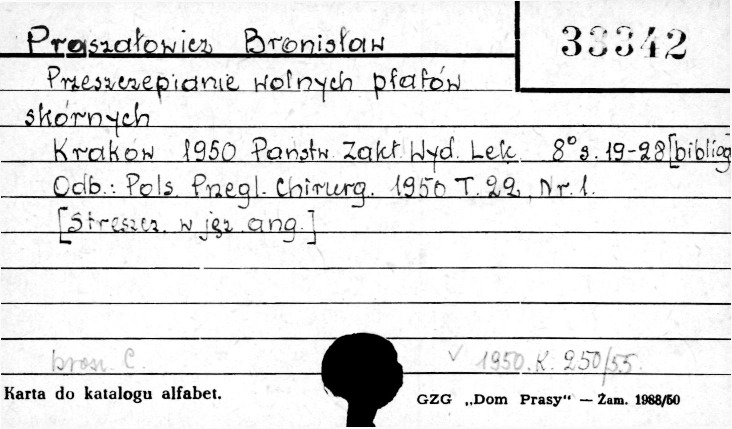 Praszałowicz Bronisław
33342
Przeszczepianie wolnych płatów
skórnych
Kraków 1950 Państw. Zakł. Wyd. Lek. 8° s. 19-28 [bibliog
Odb.: Pols. Przegl. Chirurg. 1950 T. 22, Nr. 1.
[Streszcz. w jęz. ang.]
brosz. C. v 1950. K. 250/55.
Karta do katalogu alfabet.
GZG „Dom Prasy" — Żam. 1988/50